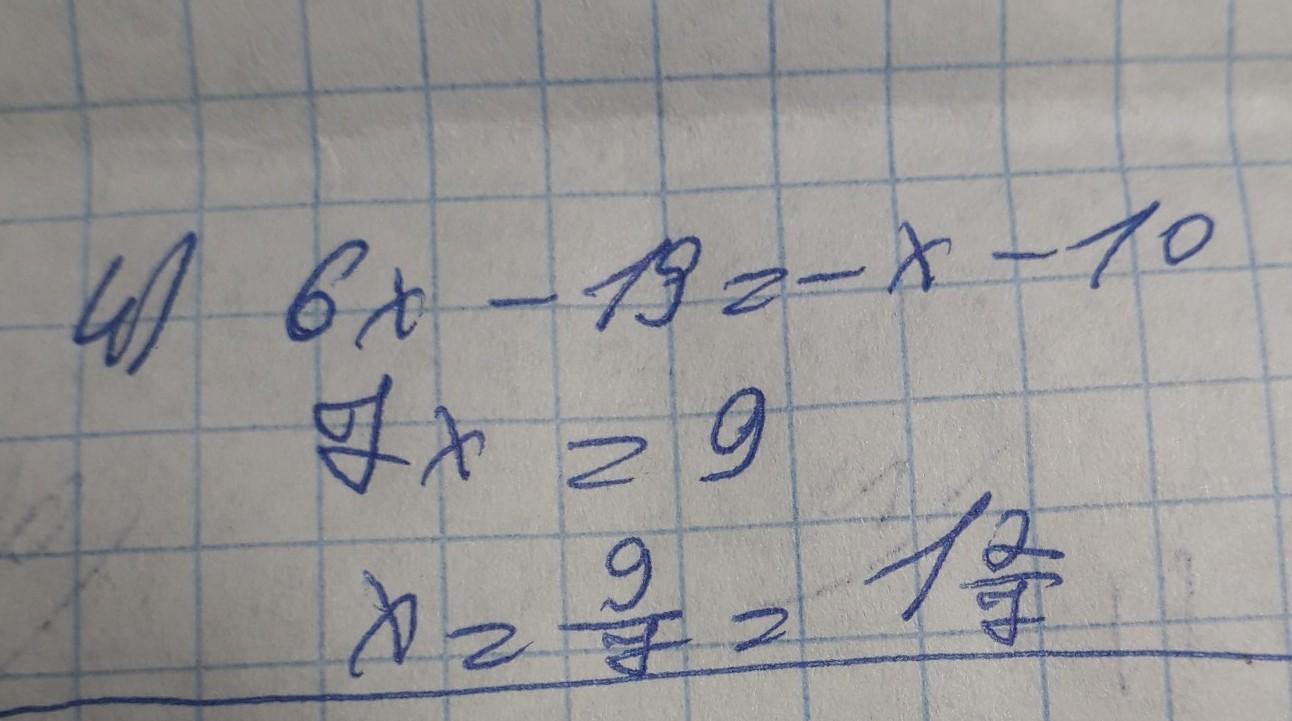 4) 6x - 19 = - x - 10
7x = 9
x = 9/7 = 1 2/7